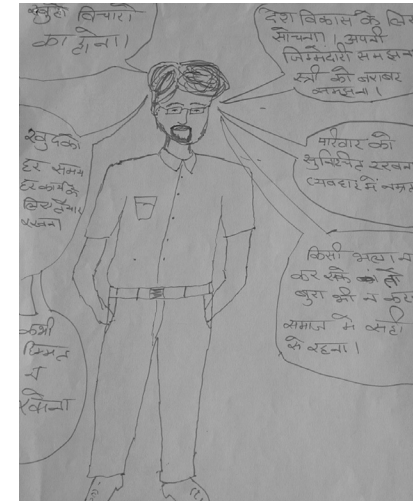 खुले विचारो
का होना।
देश विकास के लिए
सोचना। अपनी
जिम्मेदारी समझना
स्त्री को बराबर
समझना।
खुदको
हर समय
हर कार्य के
लिए तैयार
रखना
परिवार को
रखना
व्यवहार में नम्रता
किसी भला न
कर सके तो
बुरा भी न करना
समाज मे सही
से रहना।
कभी
हिम्मत
न